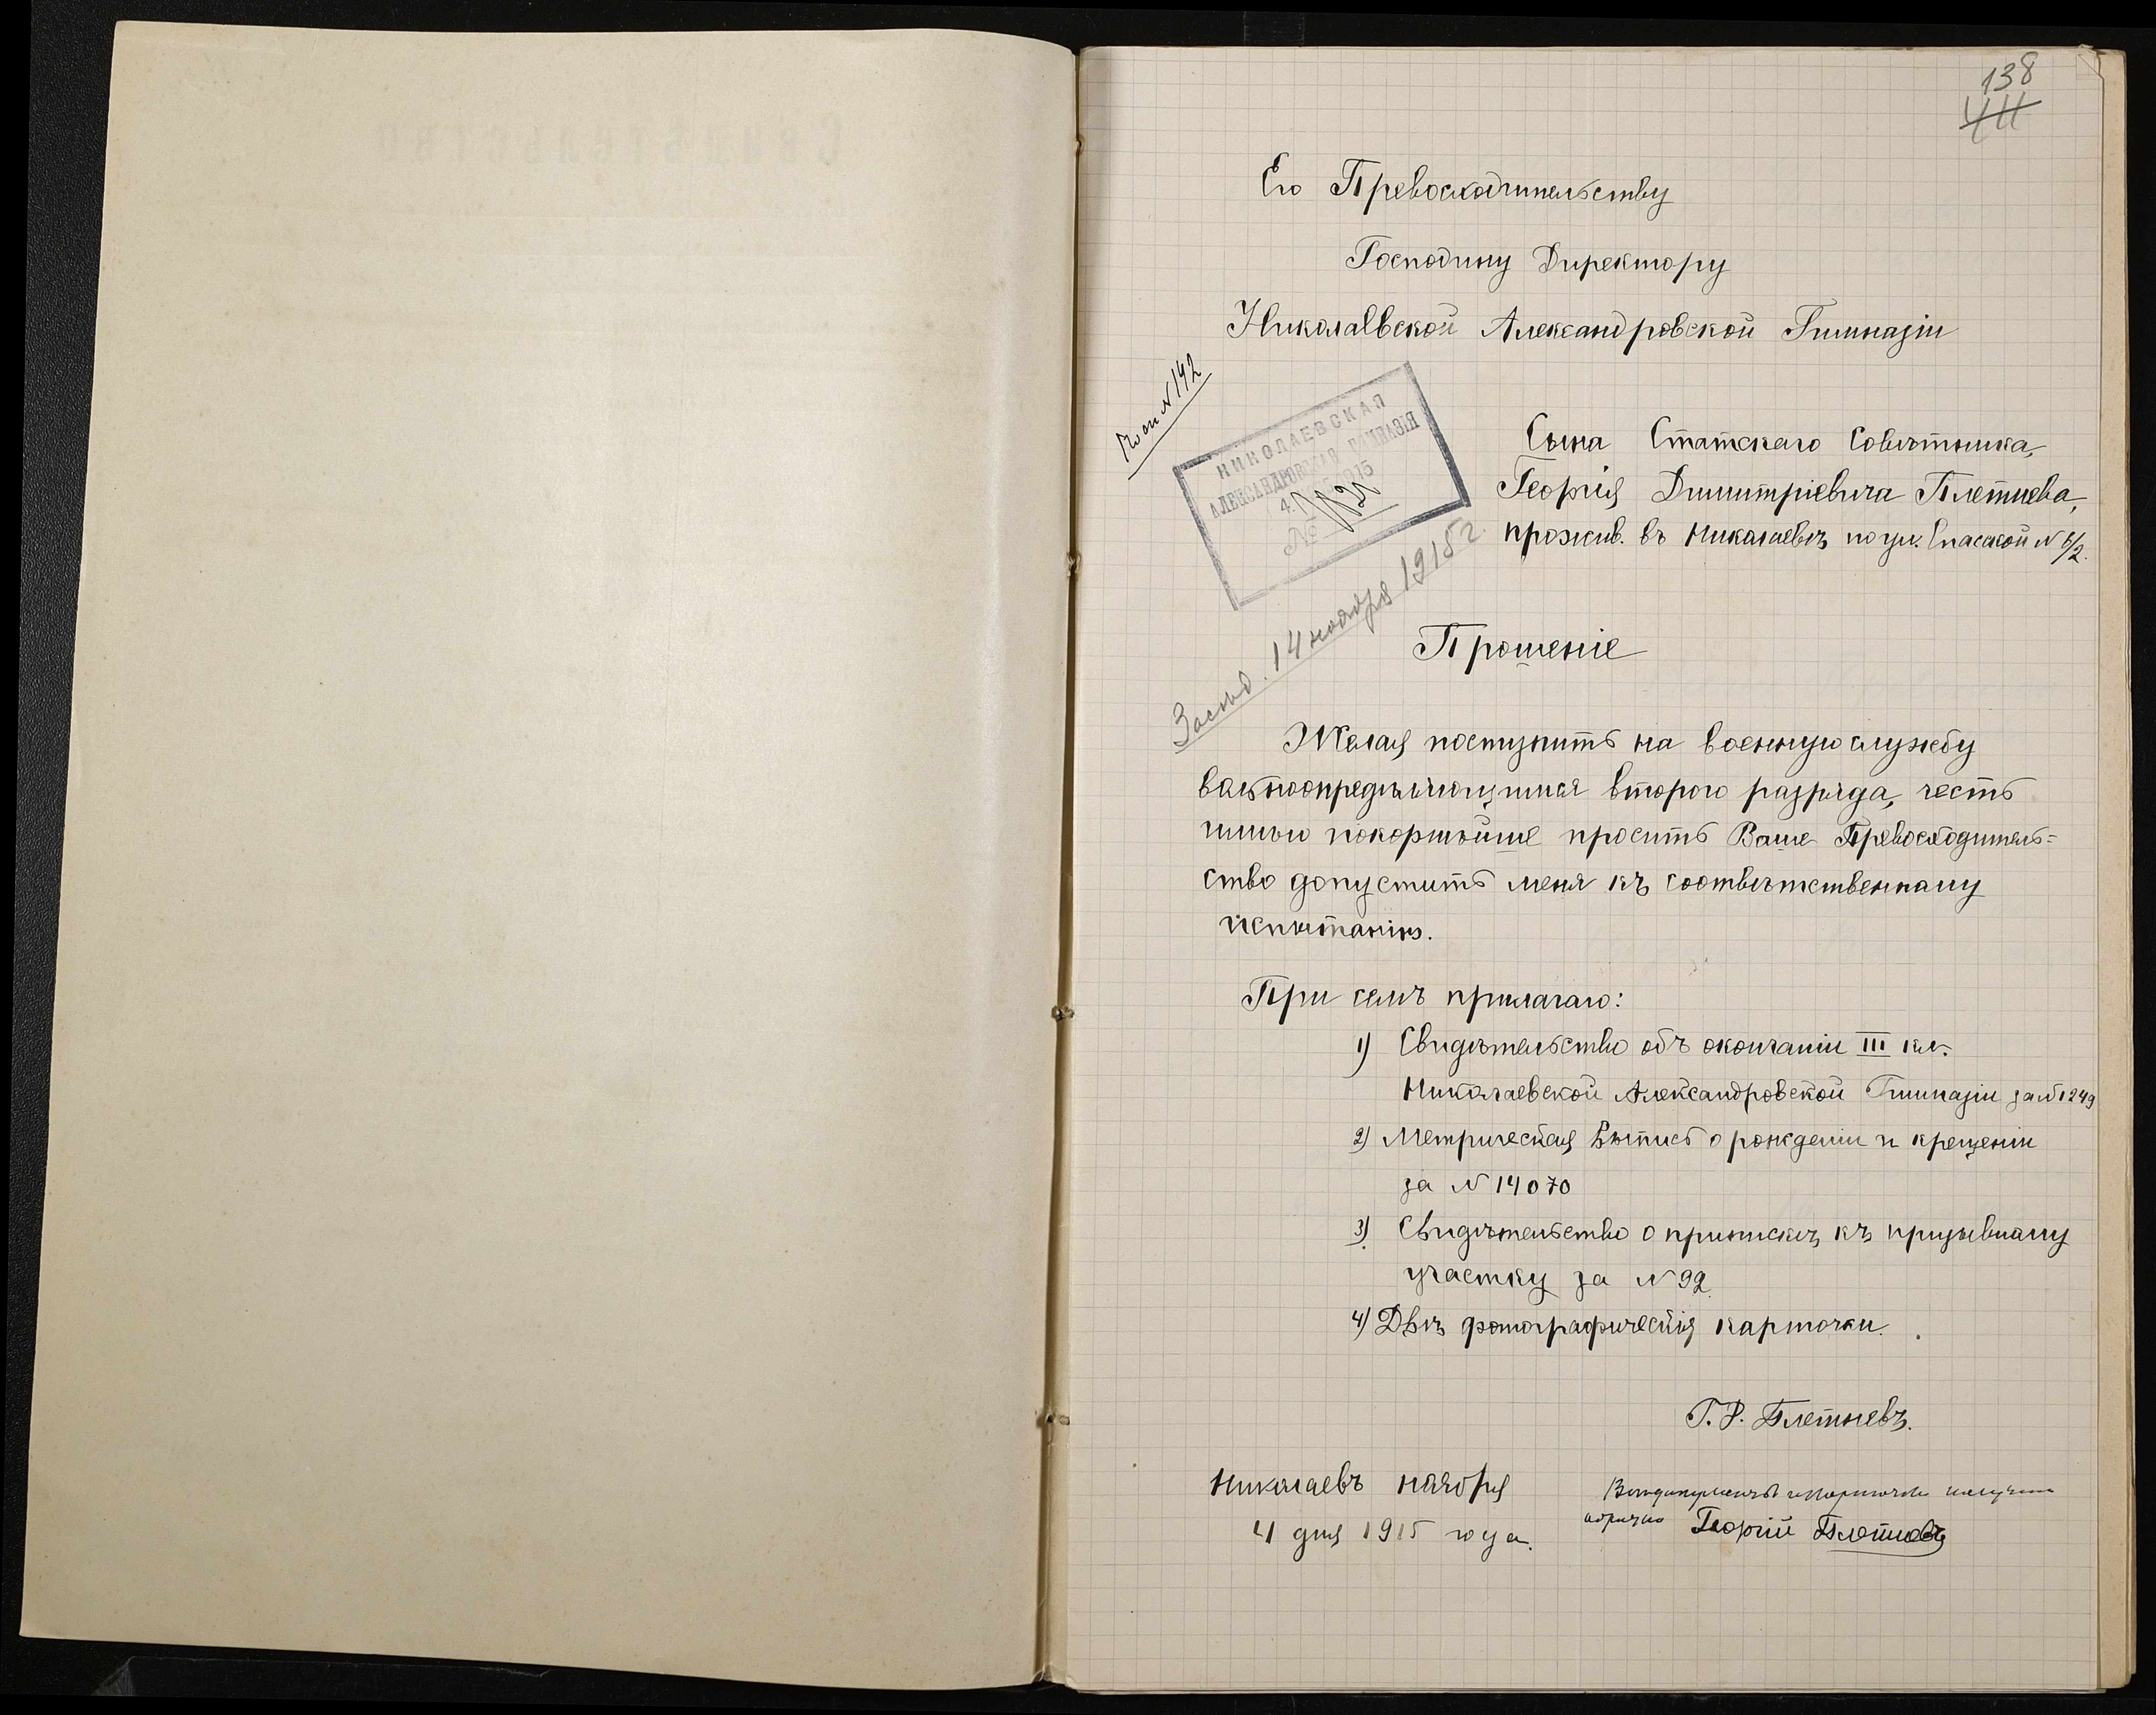 138
Его Превосходительству
Господину Директору
Николаевской Александровской Гимназіи
№ 142
НИКОЛАЕВСКАЯ
АЛЕКСАНДРОВСКАЯ ГИМНАЗІЯ
1915
№
Засѣд. 14 ноября 1915 г.
Сына Статскаго Совѣтника,
Георгія Димитріевича Плетнева,
прожив. въ Николаевѣ по ул. Спасской № 6/2.
Прошеніе
Желая поступить на военную службу
вольноопредѣляющимся второго разряда, честь
имѣю покорнѣйше просить Ваше Превосходитель=
ство допустить меня къ соотвѣтственному
испытанію.
При семъ прилагаю:
1) Свидѣтельство объ окончаніи III кл.
Николаевской Александровской Гимназіи за № 1249
2) Метрическая Выпись о рожденіи и крещеніи
за № 14070
3) Свидѣтельство о припискѣ къ призывному
участку за № 92
4) Двѣ фотографическія карточки.
Г. Д. Плетневъ.
Николаевъ ноября
4 дня 1915 года.
обратно Георгій Плетневъ